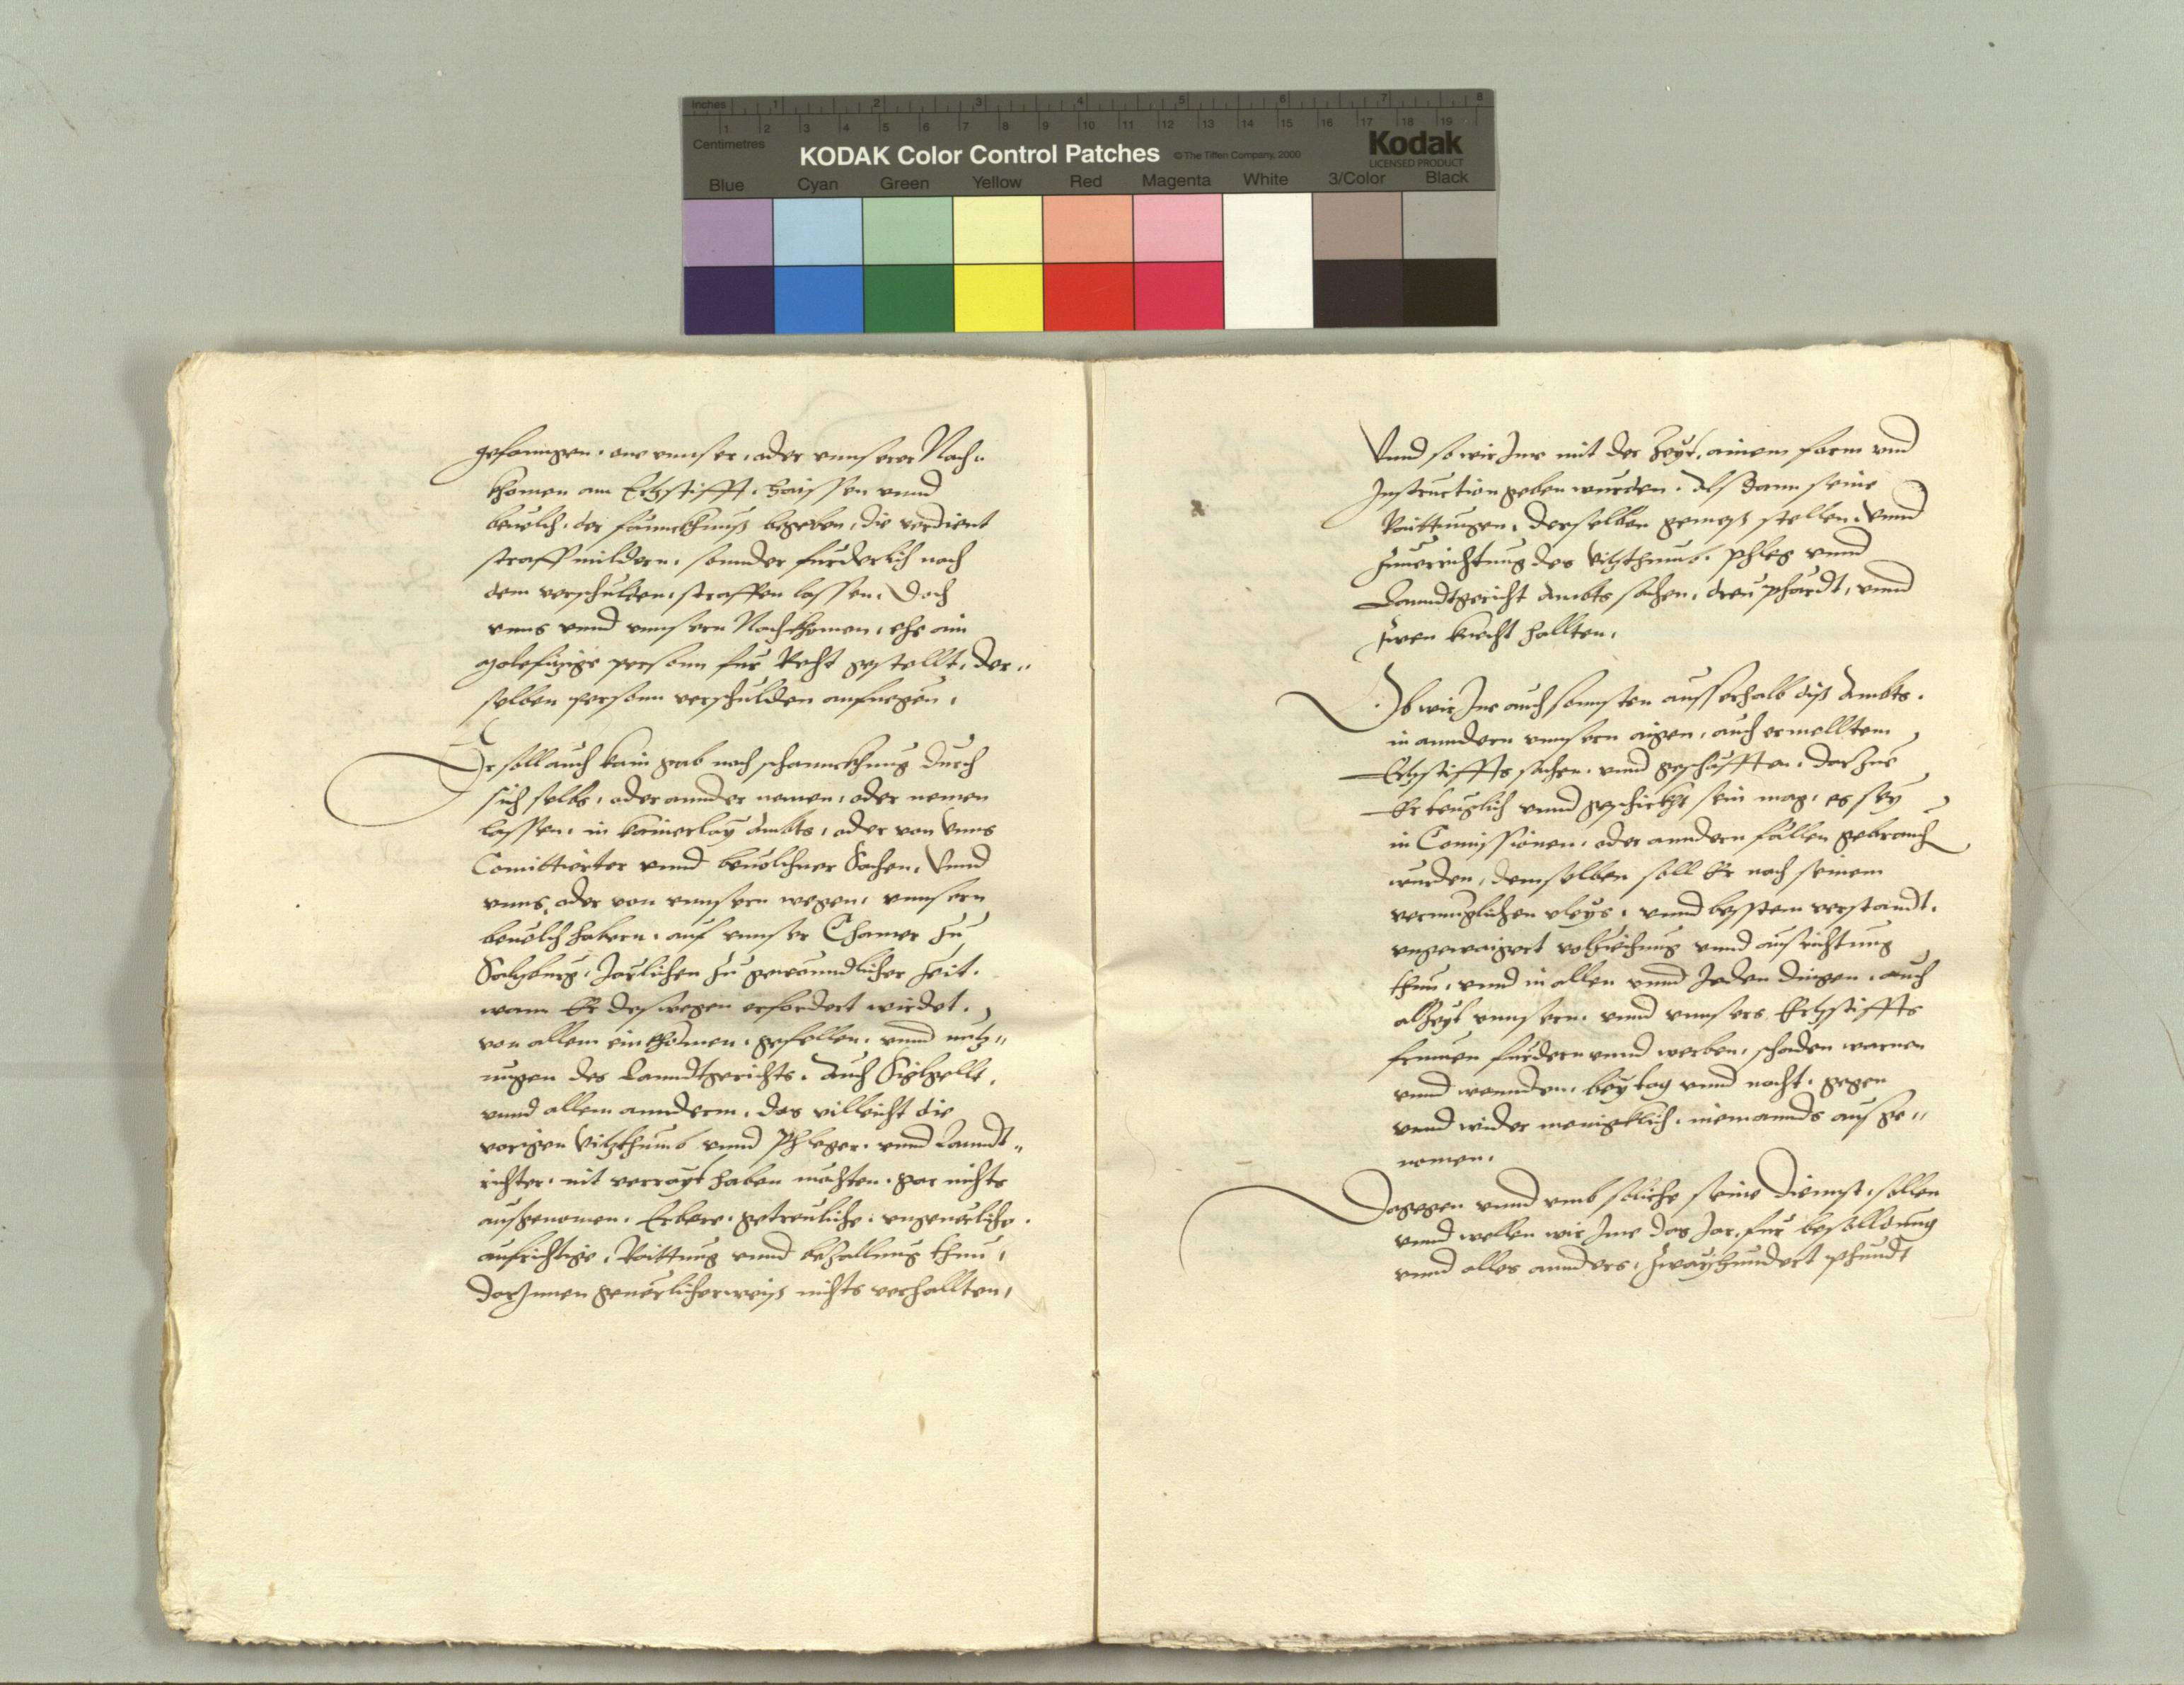 Inches 1 2 3 4 5 6 7 8
1 2 3 4 5 6 7 8 9 10 11 12 13 14 15 16 17 18 19
Centimetres
KODAK Color Control Patches © The Tiffen Company, 2000 Kodak
LICENSED PRODUCT
Blue Cyan Green Yellow Red Magenta White 3/Color Black
gefanngen, one vnnser, oder vnnserer Nach„
khomen am Ertzstifft, haissen vnnd
beuelch, der fännckhnuß begeben, die verdient
straff mildern, sonnder furderlich nach
dem verschulten, straffen lassen. Doch
vnns vnnd vnnsern Nachkhomen, ehe ain
malefizige person fur Recht gestellt, der„
selben person verschulden anfuegen,
Er soll auch kain gab noch schannckhung durch
sich selbs, oder annder nemen, oder nemen
lassen, in kainerlay Ambts, oder von vnns
Comittierter vnnd beuolchner Sachen, Vnnd
vnns, oder von vnnsern wegen, vnnsern
beuelchhabern, auf vnnser Chamer zu
Saltzburg, Jarlichen zu gewonndlicher Zeit,
wann Er deswegen erfordert wirdet,
von allem einkhomen, gefellen, vnnd nutz„
ungen des Lanndtgerichts, Auch Siglgellt,
vnnd allem annderm, das villeicht die
vorigen Vitzthumb vnnd Phleger, vnnd Lanndt„
richter, nit verrayt haben mechten, gar nichts
ausgenomen, Erbere, getreuliche, vngeuerliche,
aufrichtige, Raittung vnnd bezallung thun,
darInnen geuerlicherweiß nichts verhallten,
Vnnd so wir Ime mit der Zeyt, ainem form vnd
Instruction geben wurden, Als dann seine
Raittungen, derselben gemeß stellen, Vnnd
Zuuerrichtung des Vitzthumb, Phleg vnnd
Lanndtgericht Ambts sachen, dreu phärdt, vnnd
zwen knecht hallten,
Ob wir Ine auch sonnsten ausserhalb diß Ambts,
in anndern vnnsern aigen, auch ermelltem
Ertzstiffts sachen, vnnd geschäfften, darzue
Er teuglich vnnd geschickht sein mag, es sey
in Comissionen, oder anndern fällen gebrauch
wurden, demselben soll Er nach seinem
vermuglichen vleys, vnnd besstem verstandt,
vngewaigert volziehung vnnd ausrichtung
thun, vnnd in allen vnnd Jeden dingen, auch
alzeyt vnnsern, vnnd vnnsers Ertzstiffts
frumen furdern vnnd werben, schaden warnen
vnnd wennden, bey tag vnnd nacht, gegen
vnnd wider menigklich, niemannds ausge„
nomen,
Dagegen vnnd vmb solliche seine Diennst, sollen
vnnd wellen wir Ime das Jar, fur besolldung
vnnd alles annders, Zwayhundert phundt